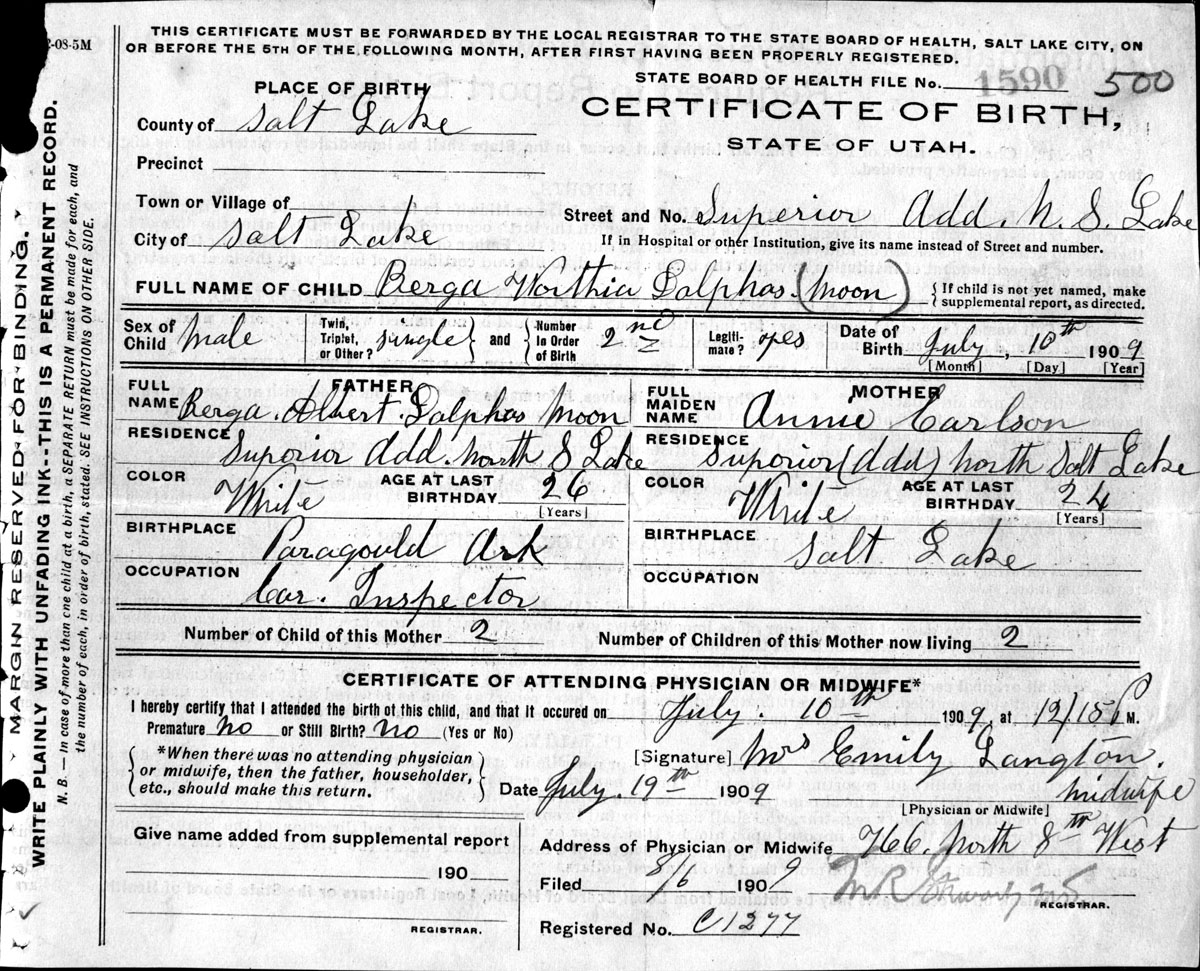 2-08-5M
THIS CERTIFICATE MUST BE FORWARDED BY THE LOCAL REGISTRAR TO THE STATE BOARD OF HEALTH, SALT LAKE CITY, ON
OR BEFORE THE 5TH OF THE FOLLOWING MONTH, AFTER FIRST HAVING BEEN PROPERLY REGISTERED.
STATE BOARD OF HEALTH FILE No. 1590 500
PLACE OF BIRTH
CERTIFICATE OF BIRTH,
STATE OF UTAH.
County of Salt Lake
Precinct
Town or Village of
Street and No. Superior Add N. S. Lake
City of Salt Lake
If in Hospital or other Institution, give its name instead of Street and number.
FULL NAME OF CHILD Berga Worthia Dalphas (Moon)
{ If child is not yet named, make
supplemental report, as directed.
Sex of Child Male Twin, Triplet, or Other? single and Number in Order of Birth 2nd Legiti-mate? yes Date of Birth July, 10th 1909
[Month] [Day] [Year]
FATHER
FULL NAME Berga. Albert. Dalphas Moon
RESIDENCE Superior Add. North S Lake
COLOR White AGE AT LAST BIRTHDAY 26
[Years]
BIRTHPLACE Paragould Ark
OCCUPATION Car. Inspector
MOTHER
FULL MAIDEN NAME Annie Carlson
RESIDENCE Superior (Add) North Salt Lake
COLOR White AGE AT LAST BIRTHDAY 24
[Years]
BIRTHPLACE Salt Lake
OCCUPATION
Number of Child of this Mother 2 Number of Children of this Mother now living 2
CERTIFICATE OF ATTENDING PHYSICIAN OR MIDWIFE*
I hereby certify that I attended the birth of this child, and that it occured on July. 10th 1909, at 12/15 P M.
Premature No or Still Birth? No (Yes or No)
*When there was no attending physician
or midwife, then the father, householder,
etc., should make this return.
[Signature] Mrs Emily Langton.
Date July. 19th 1909 midwife
[Physician or Midwife]
Give name added from supplemental report
190
REGISTRAR.
Address of Physician or Midwife 766. North 8th West
Filed 8/6 1909
REGISTRAR.
Registered No. C1277
MARGIN RESERVED FOR BINDING.
WRITE PLAINLY WITH UNFADING INK--THIS IS A PERMANENT RECORD.
N. B. — In case of more than one child at a birth, a SEPARATE RETURN must be made for each, and
the number of each, in order of birth, stated. SEE INSTRUCTIONS ON OTHER SIDE.